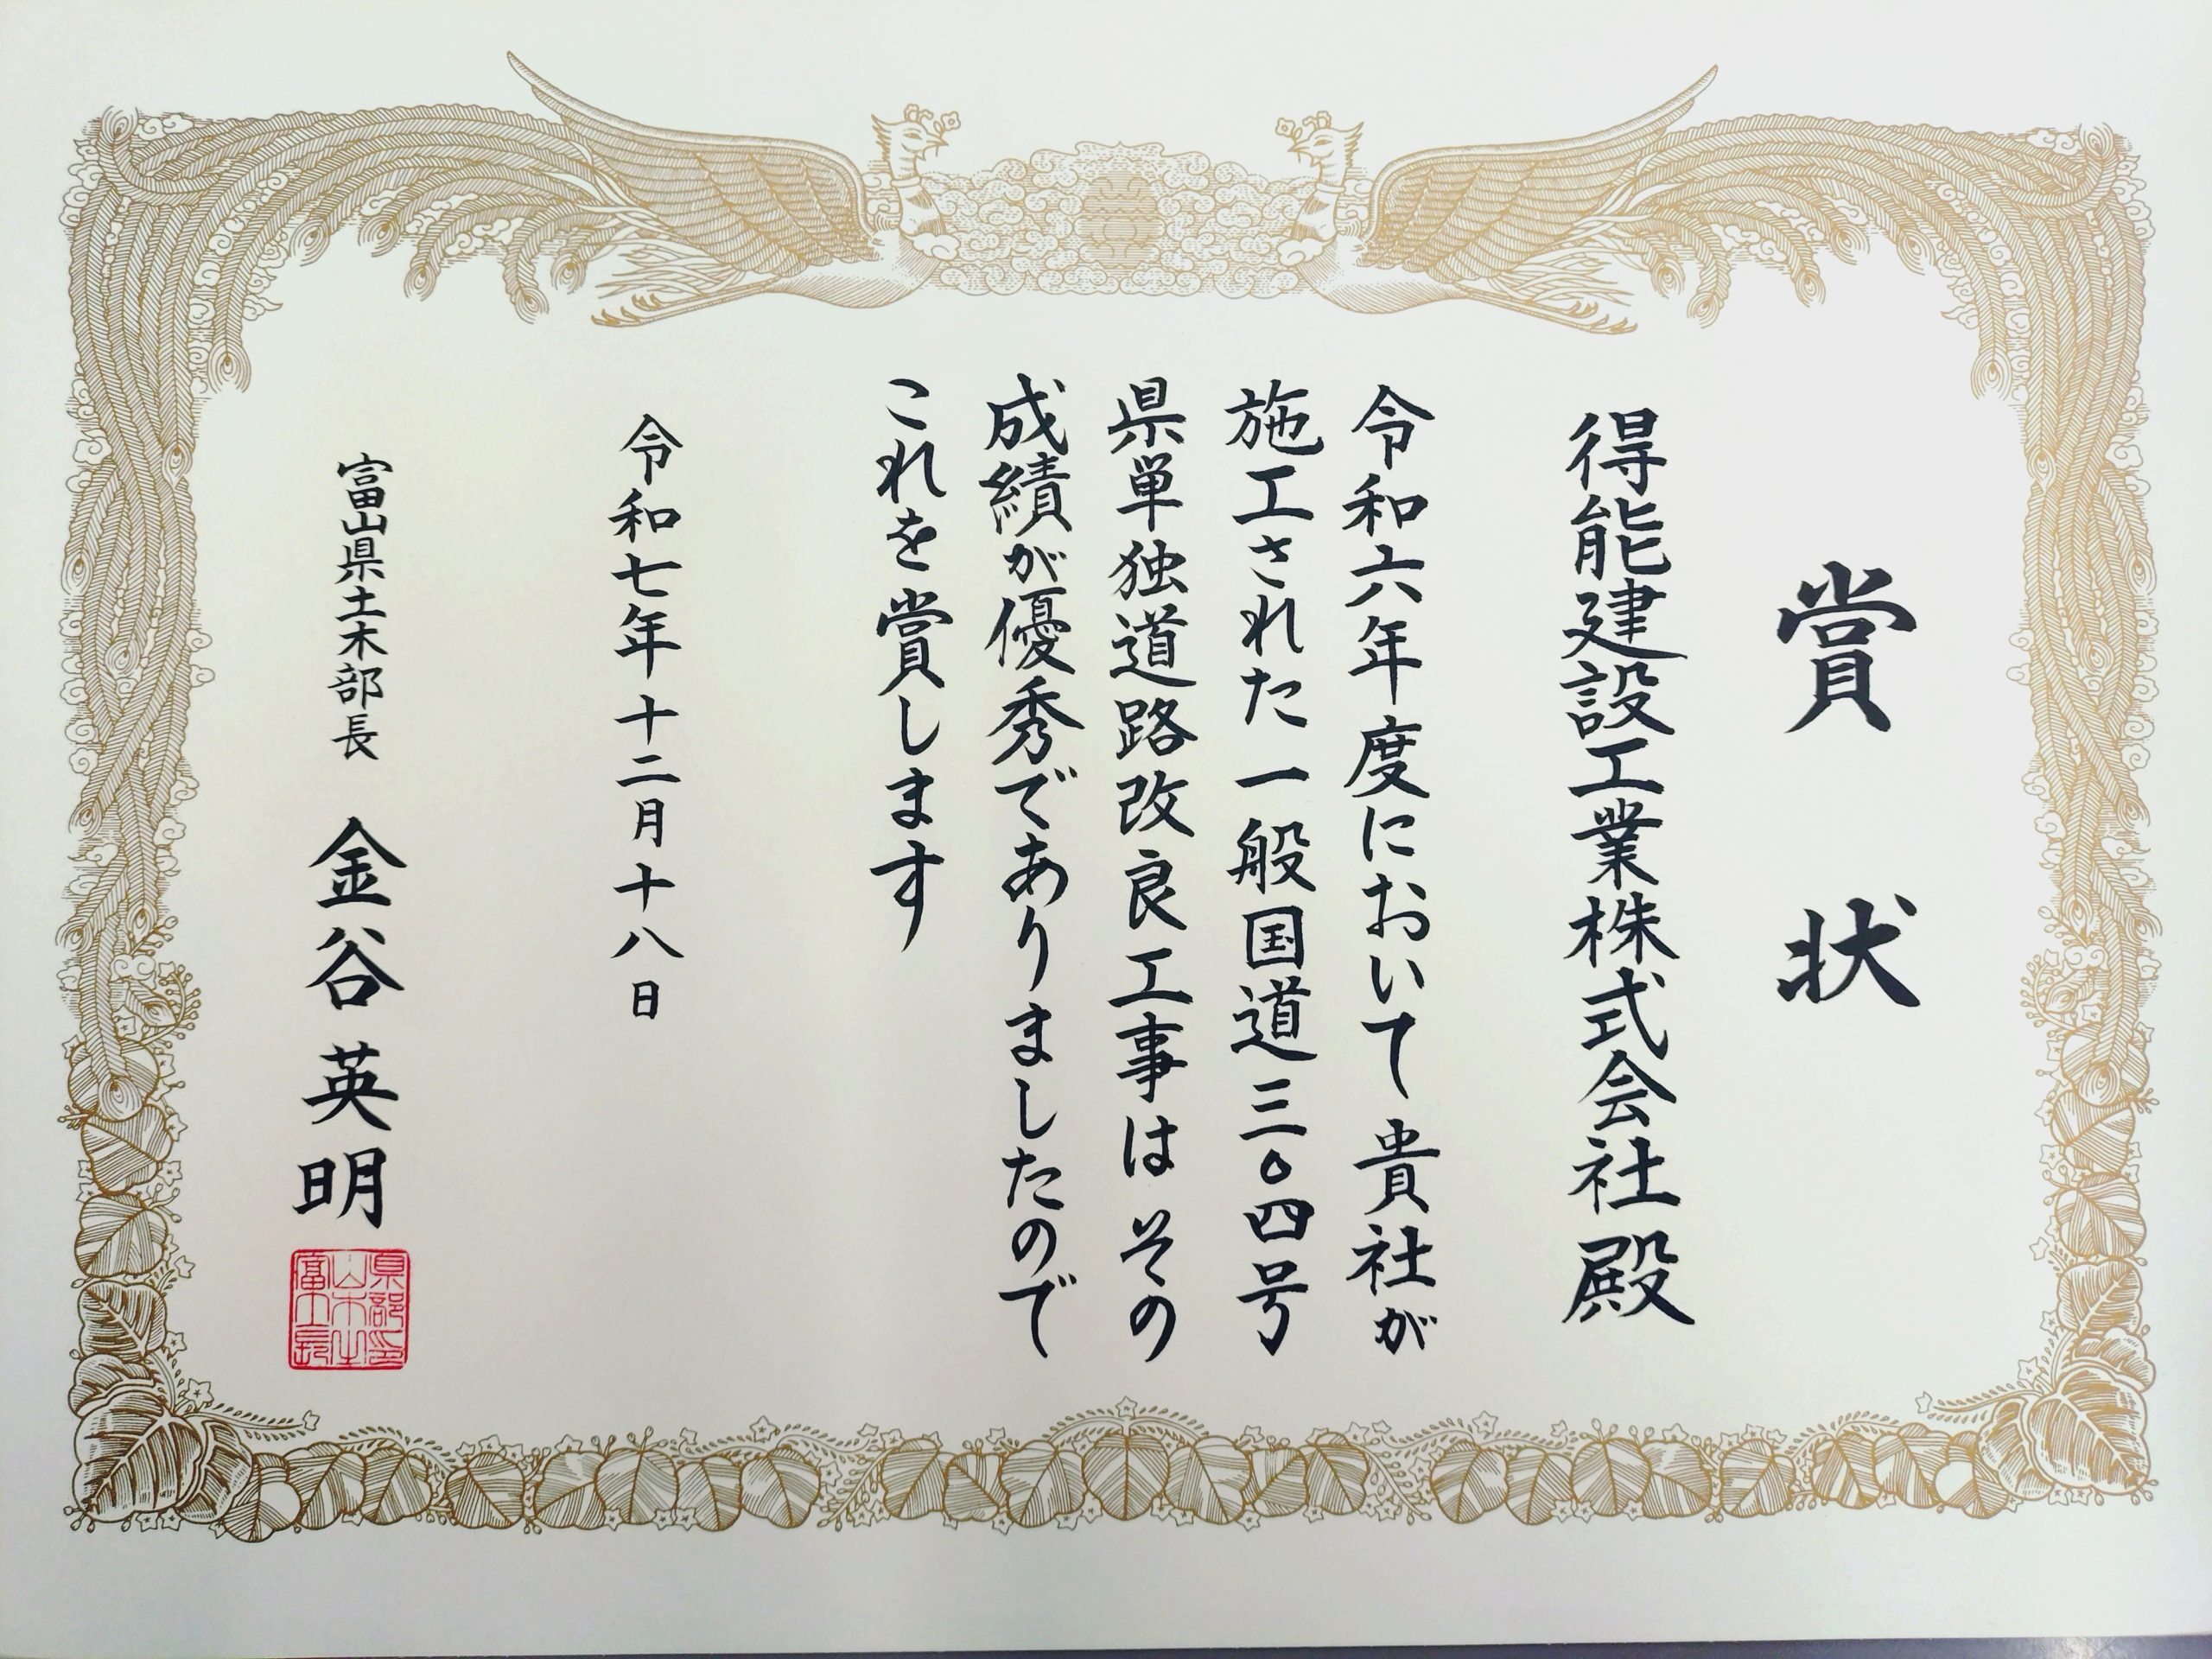 賞状
得能建設工業株式会社殿
令和六年度において貴社が
施工された一般国道三〇四号
県単独道路改良工事はその
成績が優秀でありましたので
これを賞します
令和七年十二月十八日
富山県土木部長 金谷英明
富山県土木部長之印